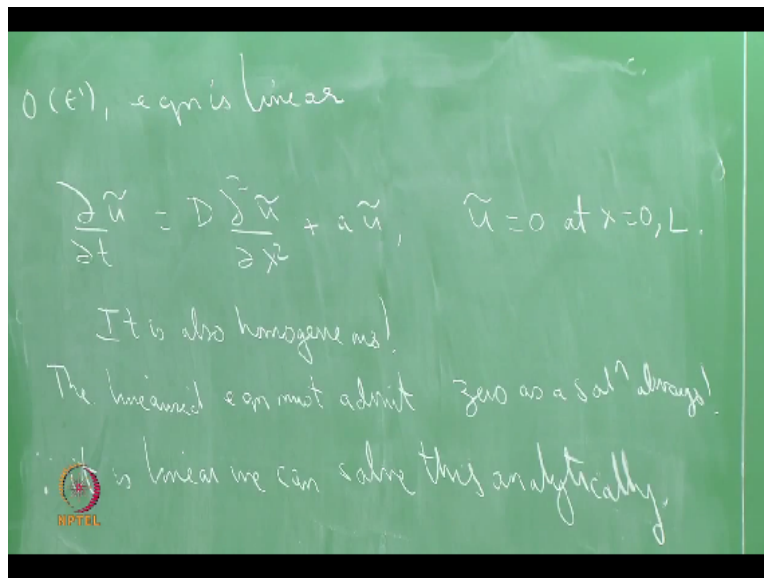 O(ε¹), eqn is linear
∂ũ/∂t = D ∂²ũ/∂x² + aũ, ũ = 0 at x = 0, L.
It is also homogeneous!
The linearised eqn must admit zero as a solⁿ always!
∵ it is linear we can solve this analytically.
NPTEL